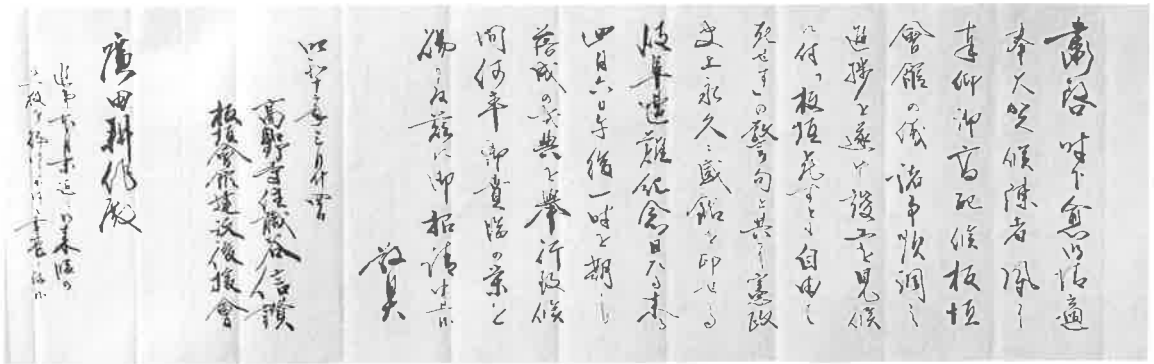 粛啓 時下愈御清適
奉大賀候陳者夙に
辱仰御高配候板垣
會館の儀諸事順調に
進捗を遂げ竣工を見候
に付「板垣死すとも自由は
死せず」の警句と共に憲政
史上永久に感銘を印せる
岐阜遭難紀念日たる来る
四月六日午後一時を期し
落成の式典を舉行致候
間何卒御貴臨の榮を
賜り度茲に御招請申上候
敬具
昭和十二年三月廿四日
高野寺住職谷信讃
板垣會館建設後援會
廣田耕作殿
追而廿月末迄に御来臨の